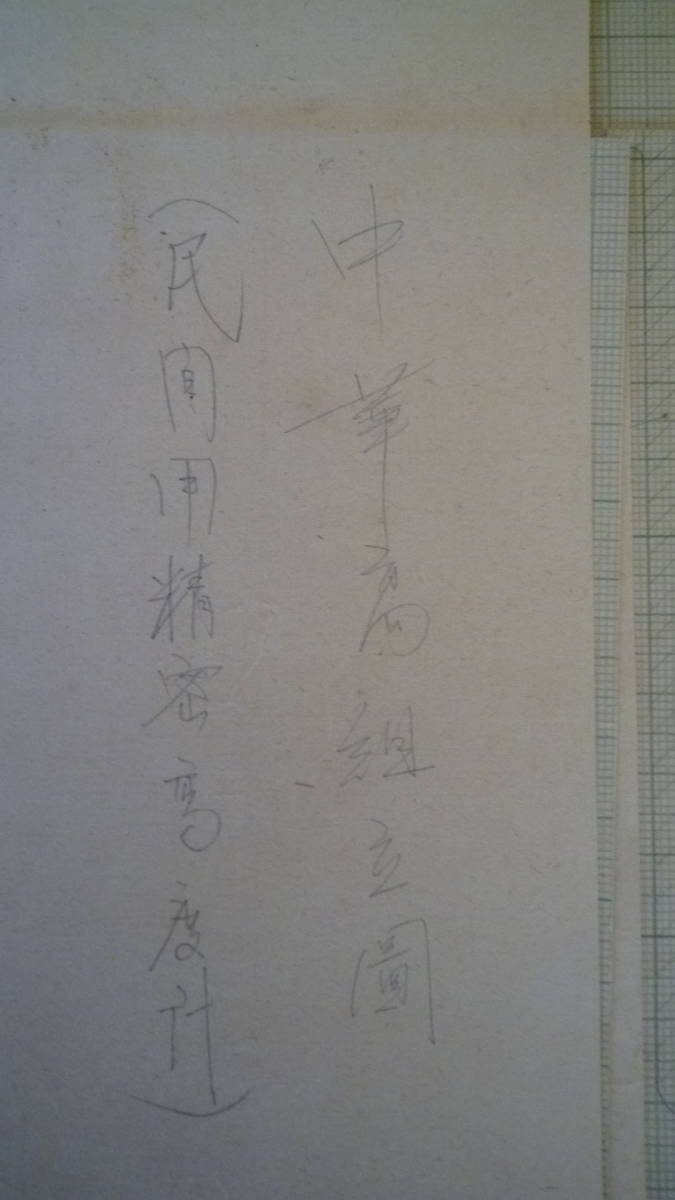 中華高組立圖
(民間用精密高度計)